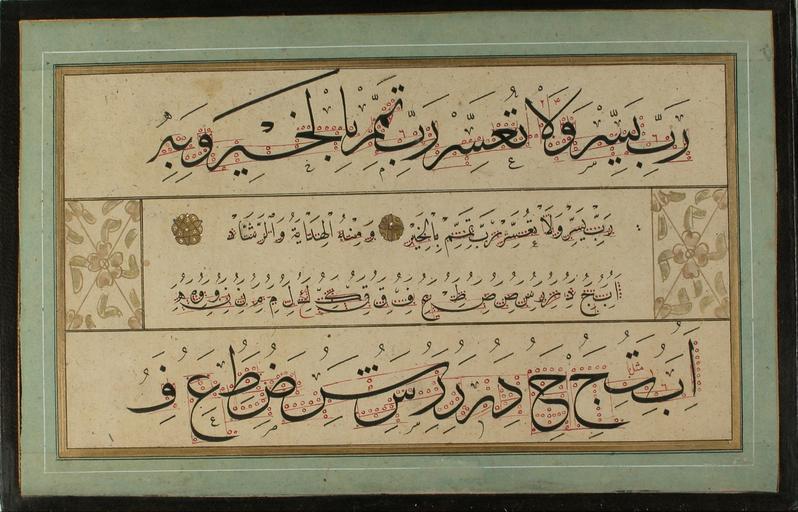 رَبِّ يَسِّرْ وَلَا تُعَسِّرْ رَبِّ تَمِّمْ بِالْخَيْرِ وَبِهِ
رَبِّ يَسِّرْ وَلَا تُعَسِّرْ رَبِّ تَمِّمْ بِالْخَيْرِ وَمِنْهُ الْهِدَايَةُ وَالرَّشَادْ
ا ب ج د ر س ص ط ع ف ق ك ل م ن و
ا ب ت ج ح د ر ر س ض ط ع ف